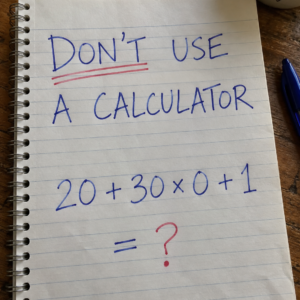 DON'T USE
A CALCULATOR
20 + 30 × 0 + 1
= ?